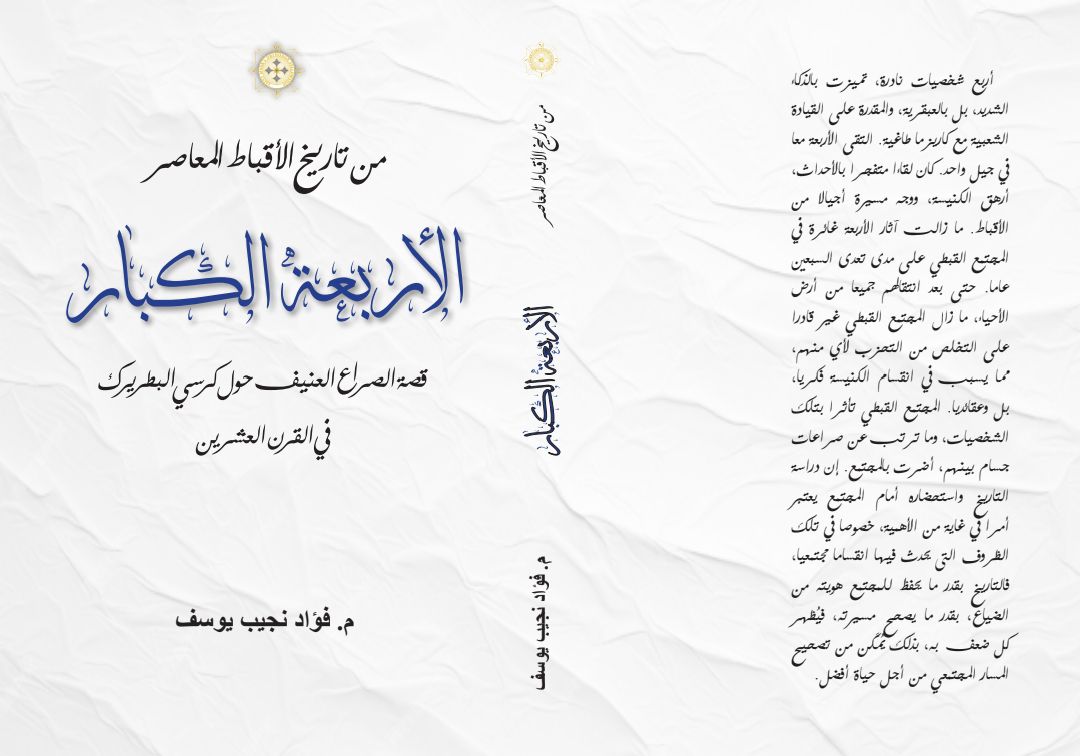 من تاريخ الأقباط المعاصر
الأربعة الكبار
قصة الصراع العنيف حول كرسي البطريرك
في القرن العشرين
م. فؤاد نجيب يوسف
من تاريخ الأقباط المعاصر
الأربعة الكبار
م. فؤاد نجيب يوسف
أربع شخصيات نادرة، تميزت بالذكاء
الشديد، بل بالعبقرية، والمقدرة على القيادة
الشعبية مع كاريزما طاغية. التقى الأربعة معا
في جيل واحد. كان لقاءا متفجرا بالأحداث،
أرهق الكنيسة، ووجه مسيرة أجيالا من
الأقباط. ما زالت آثار الأربعة غائرة في
المجتمع القبطي على مدى تعدى السبعين
عاما. حتى بعد انتقالهم جميعا من أرض
الأحياء، ما زال المجتمع القبطي غير قادرا
على التخلص من التحزب لأي منهم،
مما يسبب في انقسام الكنيسة فكريا،
بل وعقائديا. المجتمع القبطي تأثرا بتلك
الشخصيات، وما ترتب عن صراعات
جسام بينهم، أضرت بالمجتمع. إن دراسة
التاريخ واستحضاره أمام المجتمع يعتبر
أمرا في غاية من الأهمية، خصوصا في تلك
الظروف التى يحدث فيها انقساما مجتمعيا،
فالتاريخ بقدر ما يحفظ للمجتمع هويته من
الضياع، بقدر ما يصحح مسيرته، فيُظهر
كل ضعف به، بذلك يمُكّن من تصحيح
المسار المجتمعي من أجل حياة أفضل.